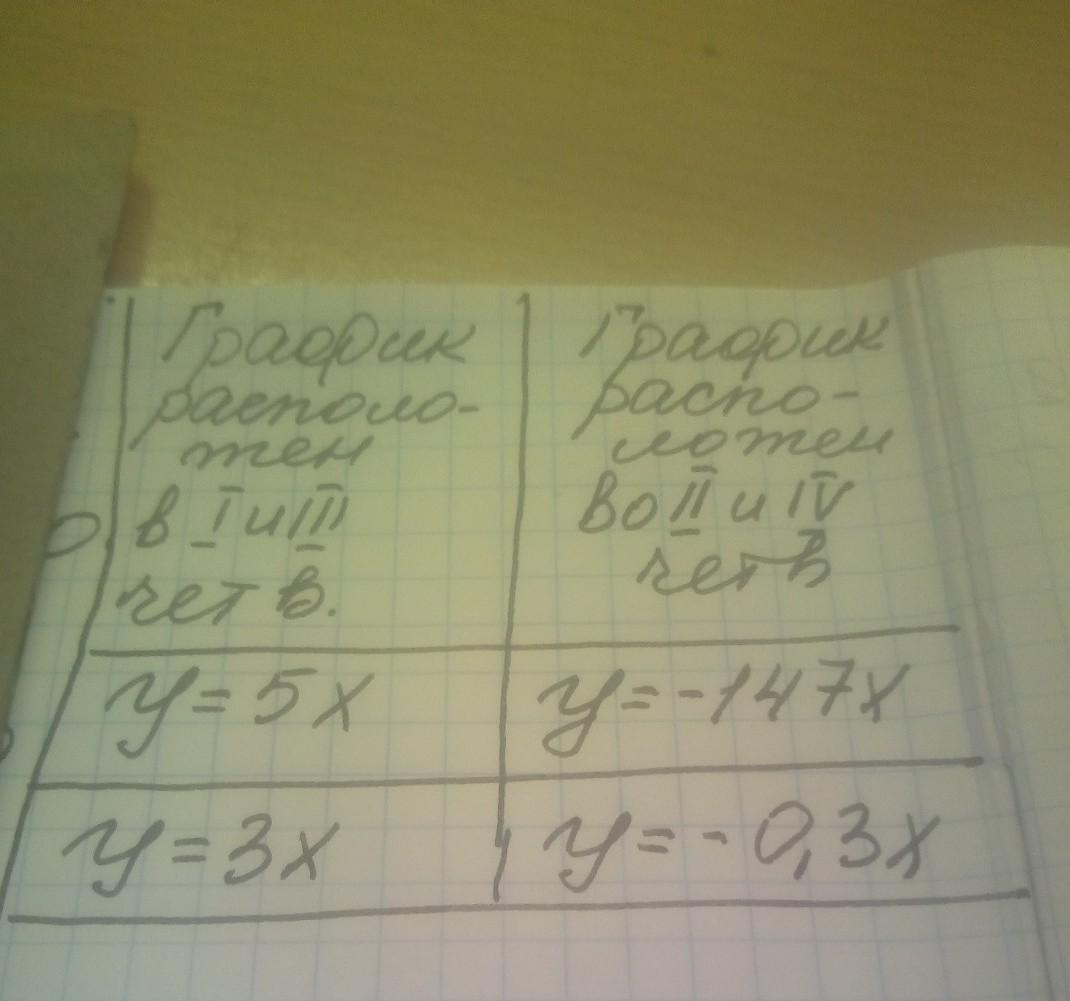 График
располо-
жен
в I и III
четв.
График
распо-
ложен
во II и IV
четв
y = 5x
y = -147x
y = 3x
y = - 0,3x